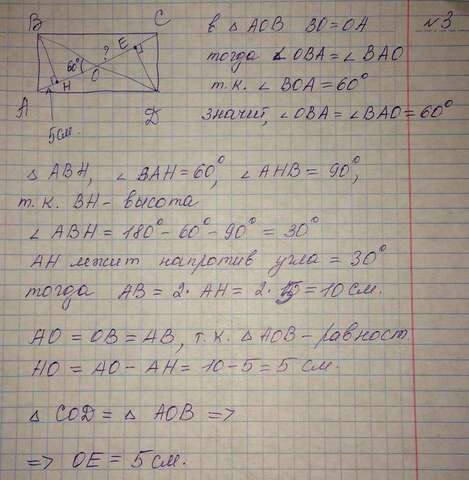 N3
B C E ? 60° O H A D 5см.
в △ AOB BO = OA
тогда ∠ OBA = ∠ BAO
т.к. ∠ BOA = 60°
значит, ∠ OBA = ∠ BAO = 60°
△ ABH, ∠ BAH = 60°, ∠ AHB = 90°,
т.к. BH - высота
∠ ABH = 180° - 60° - 90° = 30°
AH лежит напротив угла = 30°
тогда AB = 2 · AH = 2 · 5 = 10 см.
AO = OB = AB, т.к. △ AOB - равност.
HO = AO - AH = 10 - 5 = 5 см.
△ COD = △ AOB =>
=> OE = 5 см.